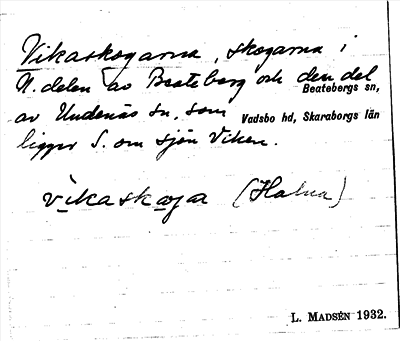 Vikaskogarna, skogarna i
N. delen av Beateberg och den del
Beatebergs sn,
av Undenäs sn, som
Vadsbo hd, Skaraborgs län
ligger S. om sjön Viken.
vikaskoga (Halna)
L. MADSÉN 1932.